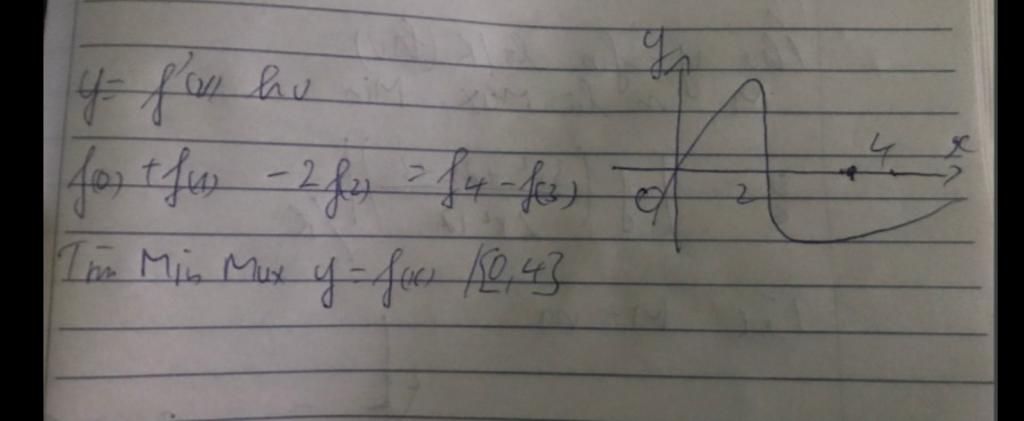 y = f'(x) hv
f(0) + f(1) - 2f(2) = f4 - f(3)
Tìm Min Max y = f(x) /[0,4]
y
x
4
O
2